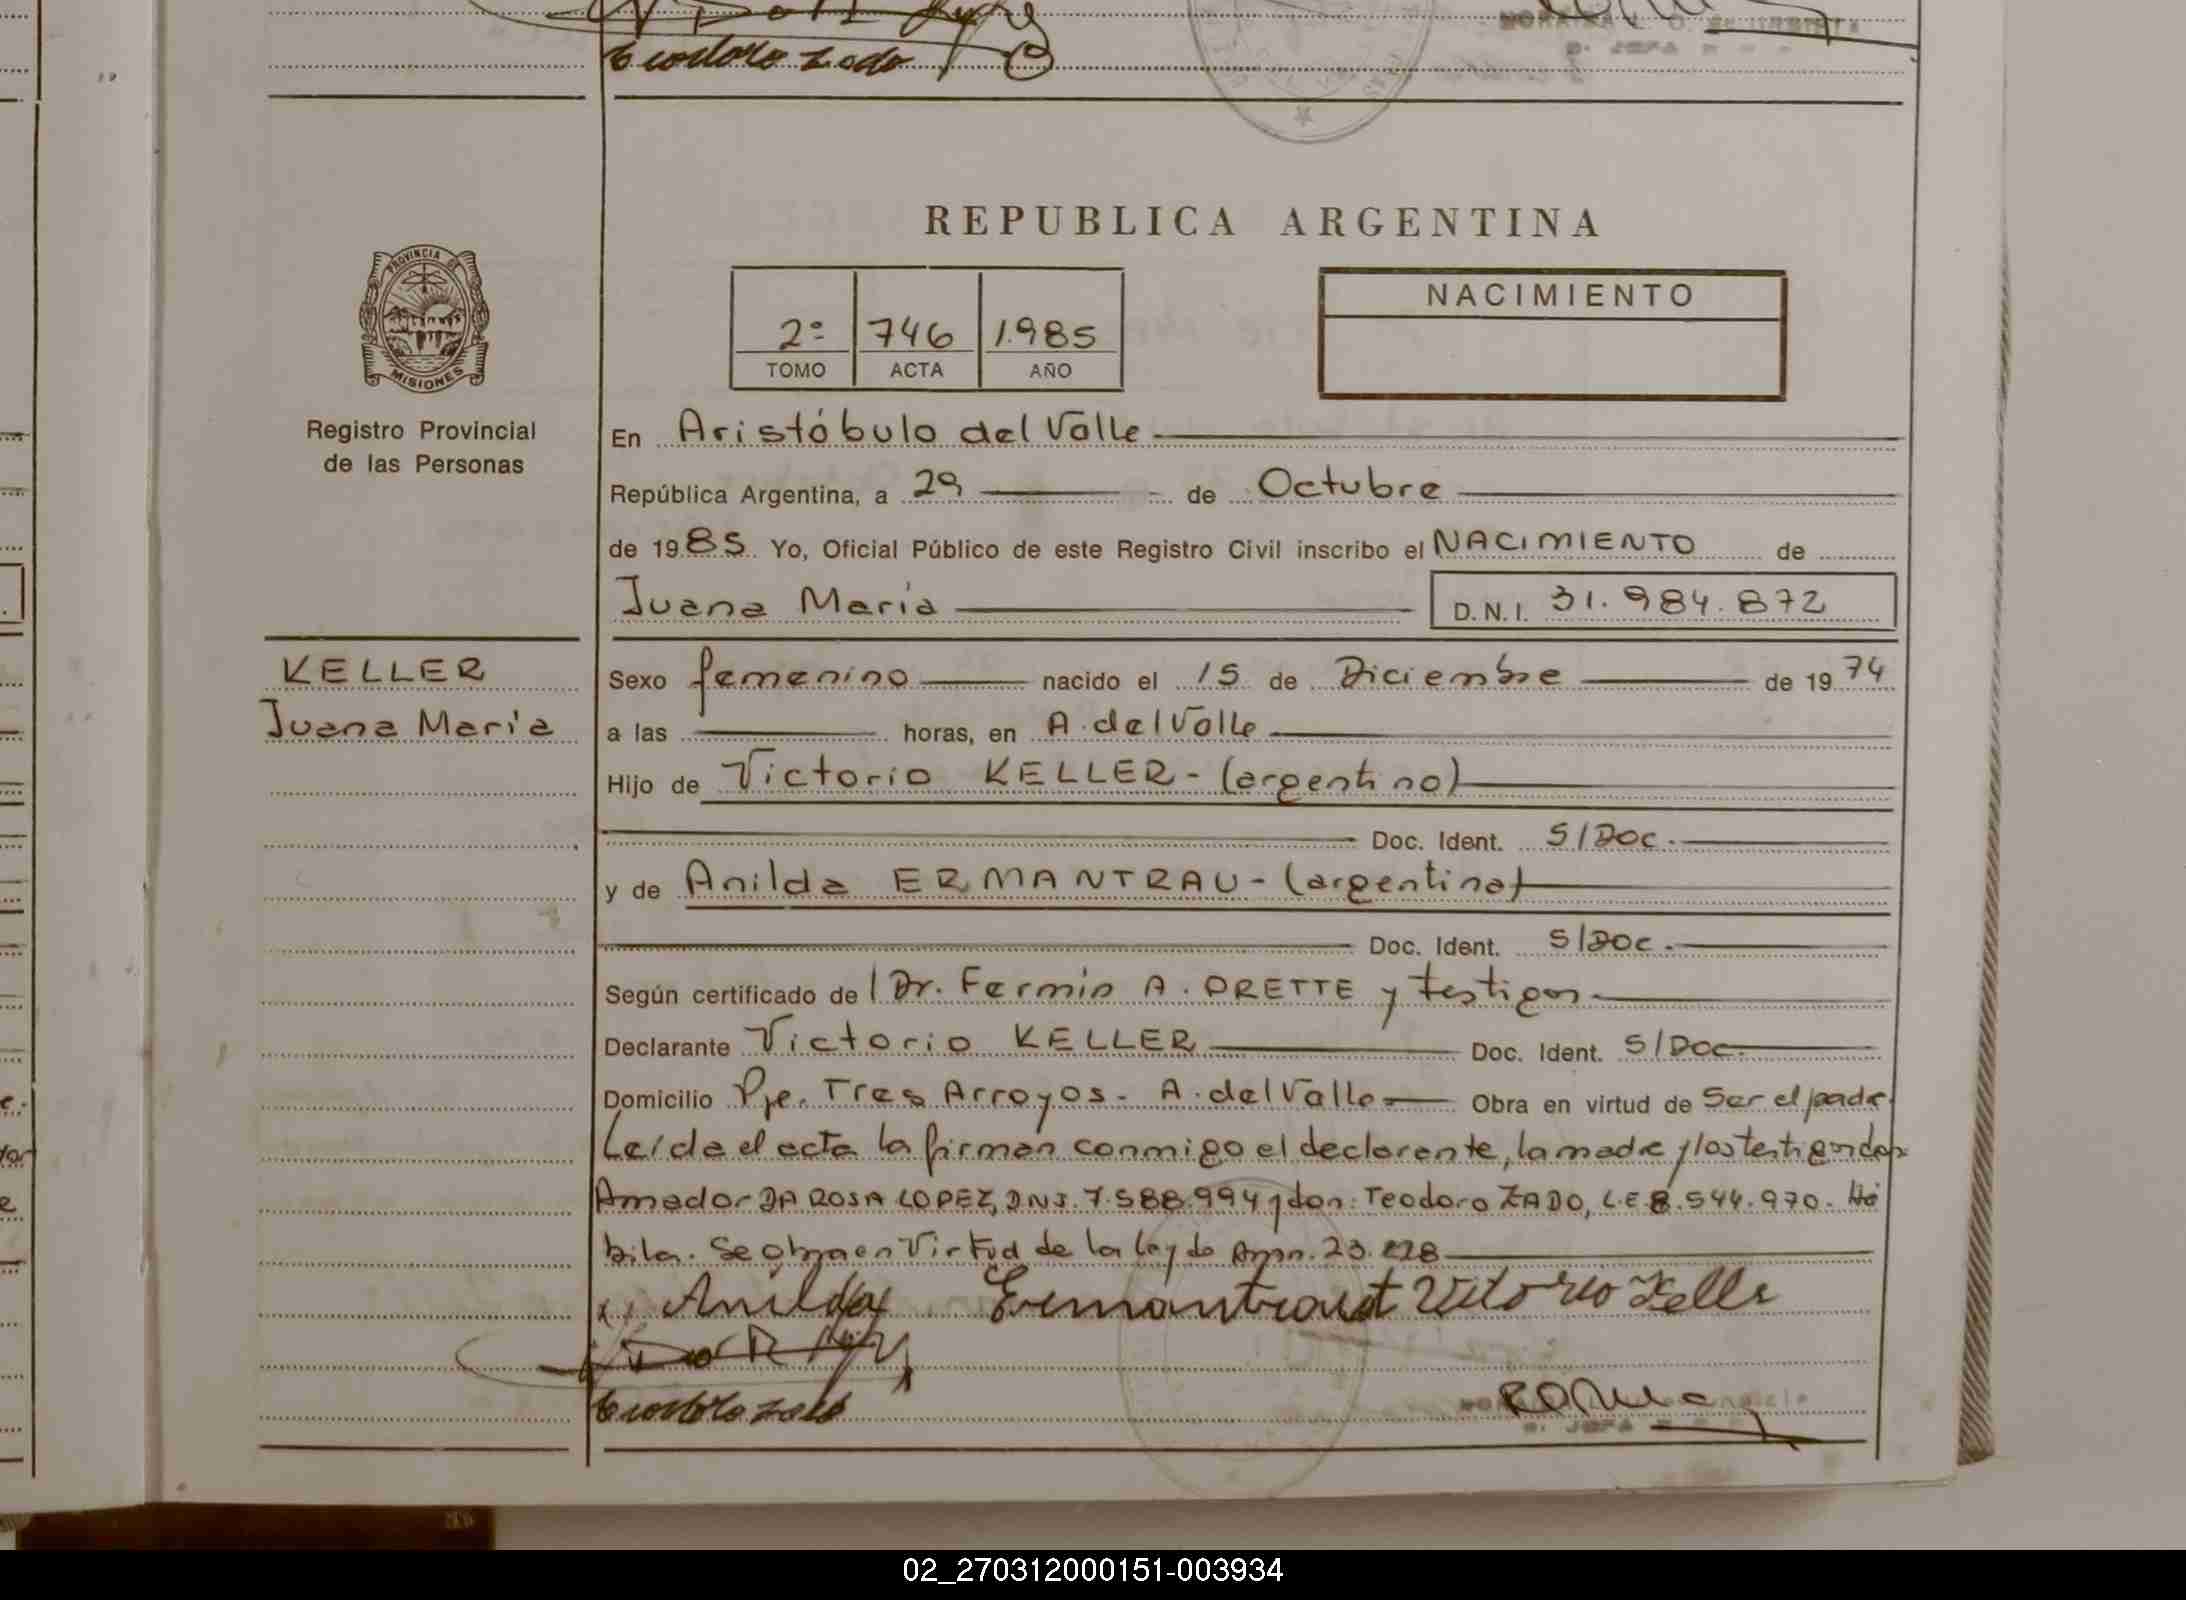 Teodoro Zado
REPUBLICA ARGENTINA
PROVINCIA DE
MISIONES
Registro Provincial
de las Personas
2º 746 1.985
TOMO ACTA AÑO
NACIMIENTO
En Aristóbulo del Valle
República Argentina, a 29 de Octubre
de 1985 Yo, Oficial Público de este Registro Civil inscribo el NACIMIENTO de
Juana María D.N.I. 31.984.872
KELLER
Juana María
Sexo femenino nacido el 15 de Diciembre de 1974
a las horas, en A. del Valle
Hijo de Victorio KELLER - (argentino)
Doc. Ident. S/Doc.
y de Anilda ERMANTRAU - (argentina)
Doc. Ident. S/Doc.
Según certificado de Dr. Fermín A. ORETTE y testigos
Declarante Victorio KELLER Doc. Ident. S/Doc.
Domicilio Pje. Tres Arroyos - A. del Valle Obra en virtud de Ser el padre
Leída el acta la firman conmigo el declarante, la madre y los testigos don
Amador DA ROSA LOPEZ, DNI. 7.588.994 y don: Teodoro ZADO, L.E 8.544.970. Há
biles. Se obra en Virtud de la Ley de Amn. 23.228
Anilda Ermantraut Vitorio Keller
Teodoro Zado
02_270312000151-003934